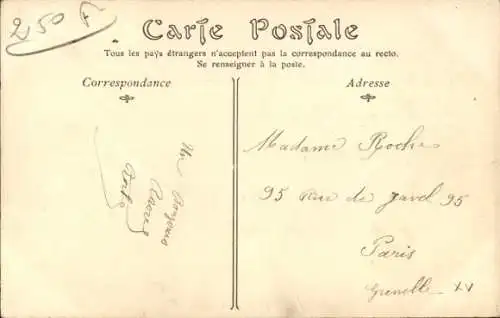 250 F
Carte Postale
Tous les pays étrangers n'acceptent pas la correspondance au recto.
Se renseigner à la poste.
Correspondance
Adresse
Un Bonjour
Madame Roche
95 Rue de Javel 95
Paris
Grenelle XV